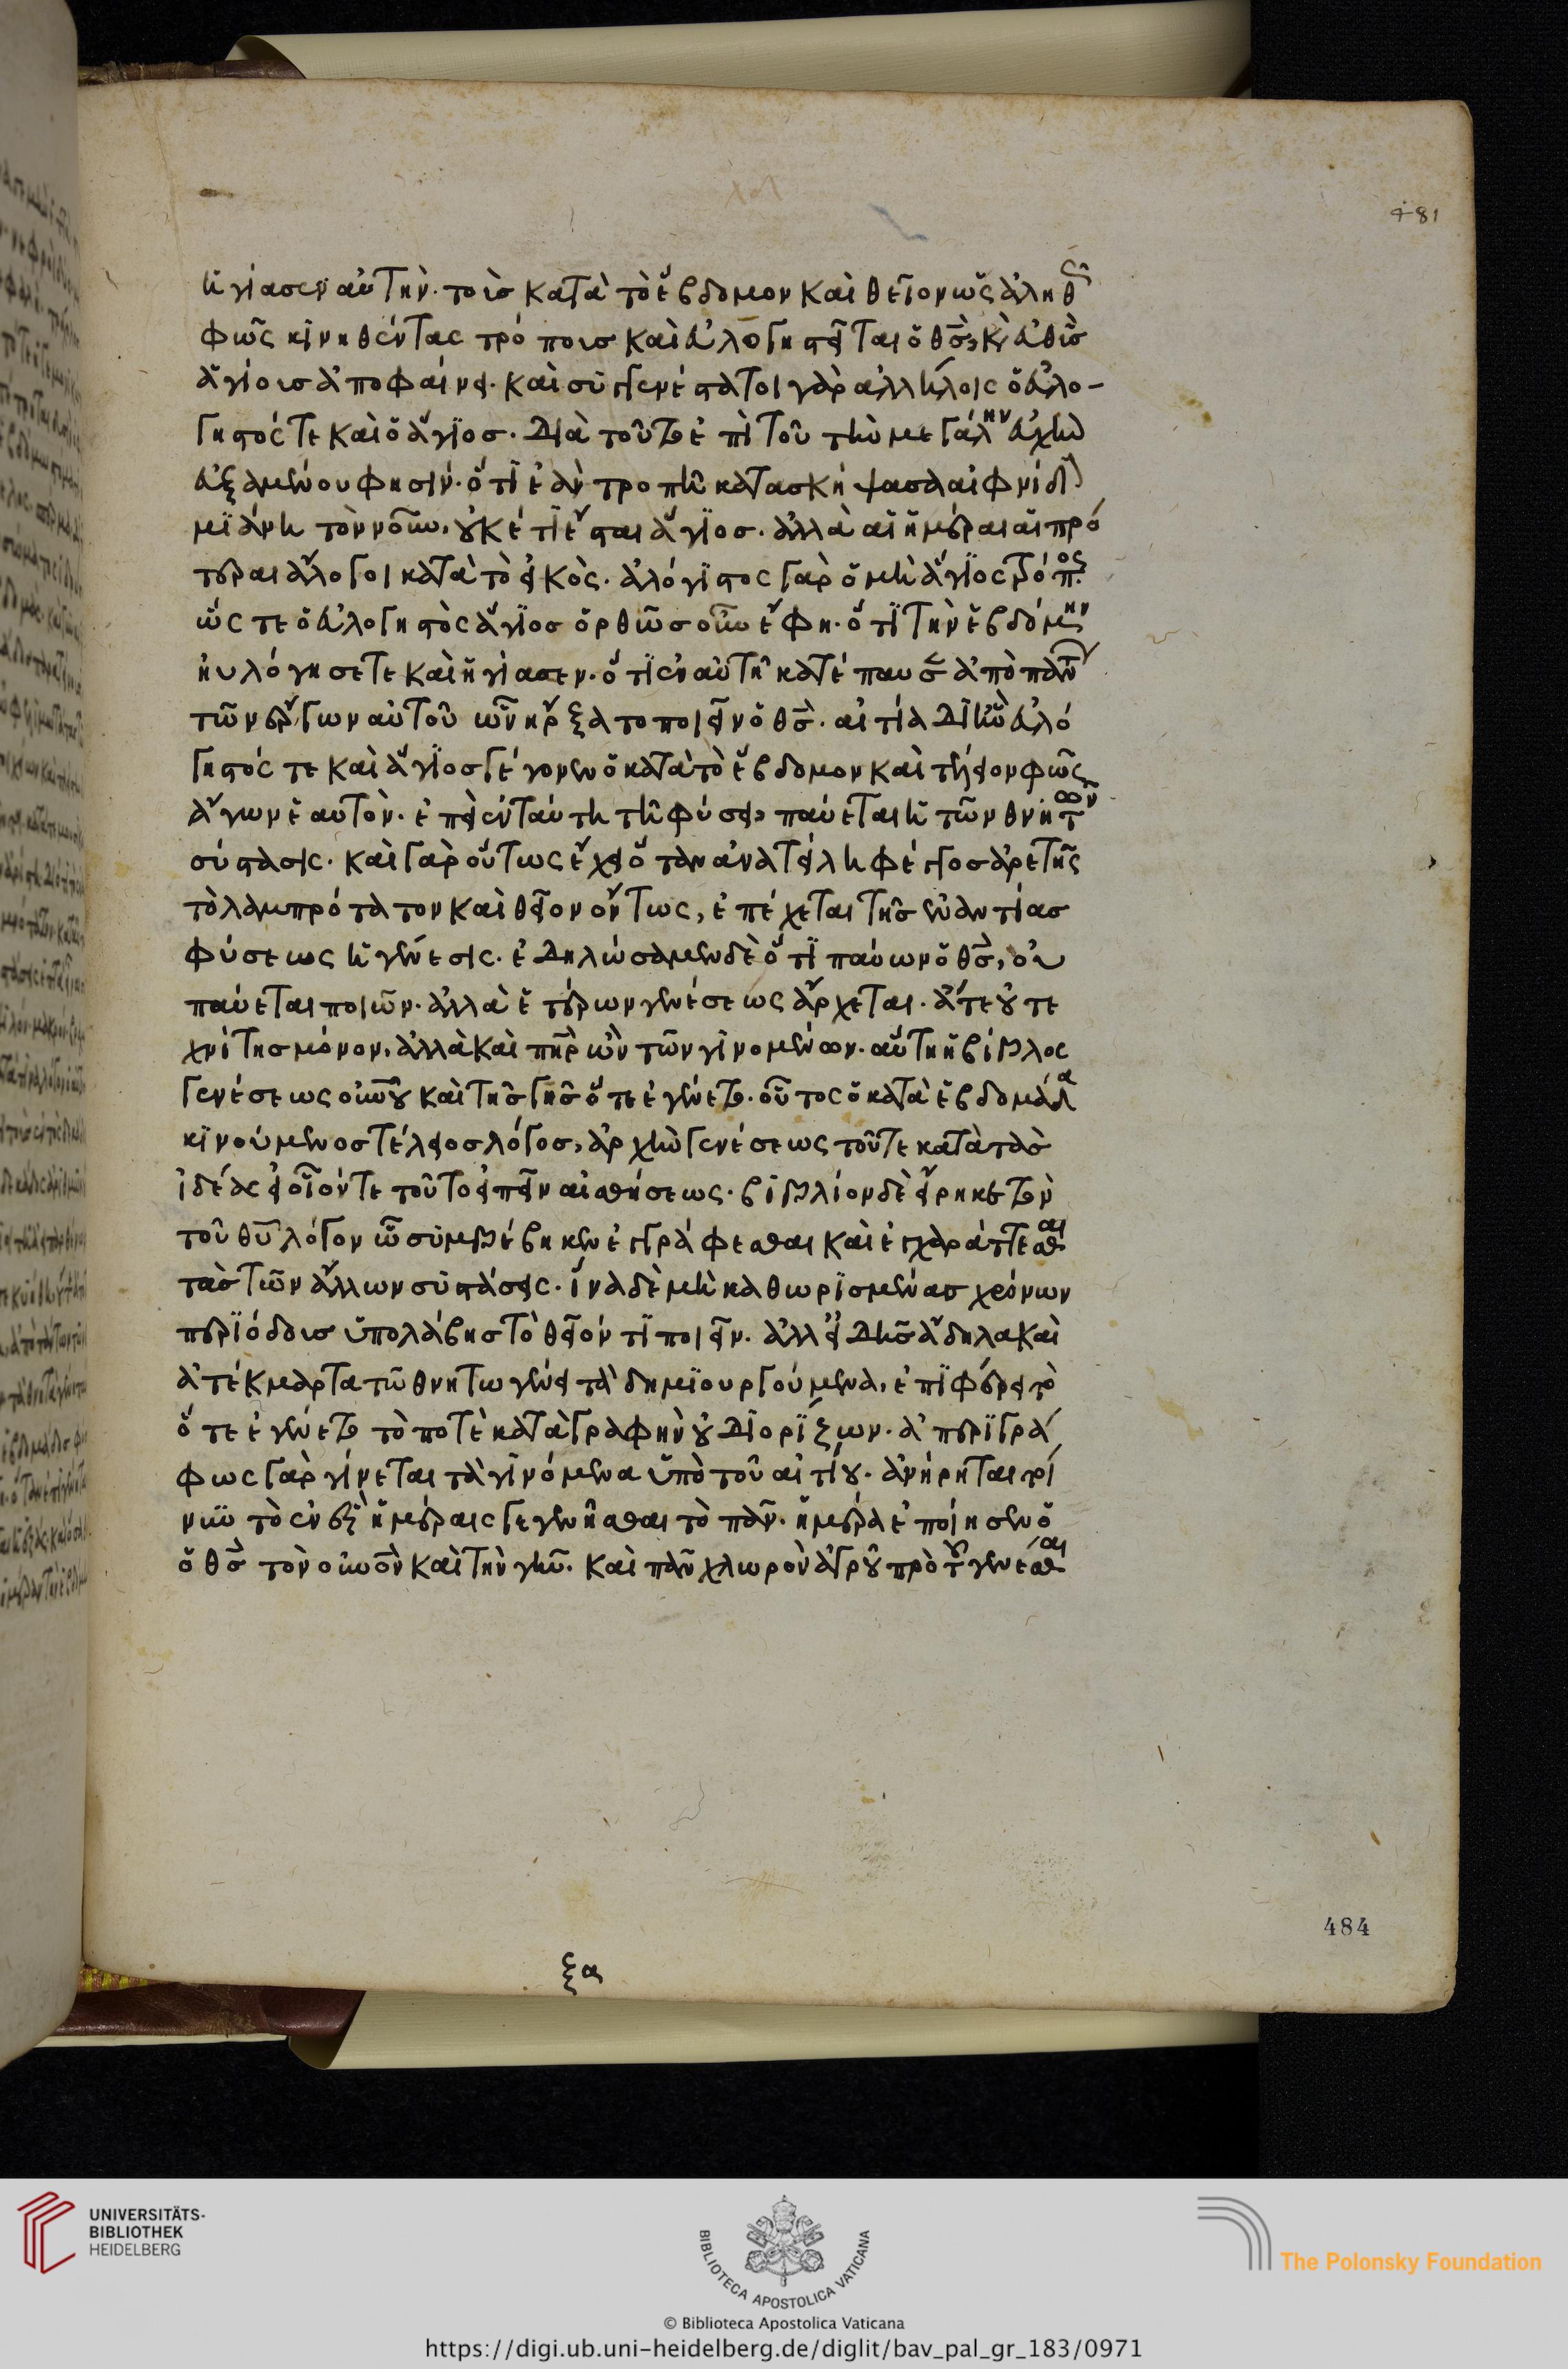 481
ἡγίασεν αὐτὴν· τοὺς κατὰ τὸ ἕβδομον καὶ θεῖον ὡς ἀληθ
φῶς κινηθέντας τρόποις καὶ εὐλογιστ ται ὁ θς, κ εὐθὺς
ἁγίους ἀποφαίνει· καὶ συγγενέστατοι γὰρ ἀλλήλοις ὁ εὐλό-
γιστός τε καὶ ὁ ἅγιος. διὰ τοῦτο ἐπὶ τοῦ τὴν μεγάλην εὐχὴν
εὐξαμένου φησίν· ὅτι ἐὰν τροπὴ κατασκήψασα αἰφνίδ
μιάνη τὸν νοῦν, οὐκέτι ἔσται ἅγιος. ἀλλὰ αἱ ἡμέραι αἱ πρό
τεραι ἄλογοι κατὰ τὸ εἰκὸς. ἀλόγιστος γὰρ ὁ μὴ ἅγιος τρόπος
ὥστε ὁ εὐλόγιστος ἅγιος ὀρθῶς οὖν ἔφη· ὅτι τὴν ἑβδόμην
ηὐλόγησέ τε καὶ ἡγίασεν. ὅτι ἐν αὐτῇ κατέπαυσ ἀπὸ παντ
τῶν ἔργων αὐτοῦ ὧν ἤρξατο ποιεῖν ὁ θς. αἰτία δι ἣν εὐλό
γιστός τε καὶ ἅγιος γέγονεν ὁ κατὰ τὸ ἕβδομον καὶ τέλειον φῶς
ἄγων ἑαυτὸν· ἐπεὶ ἐν ταύτη τῆ φύσει, παύεται ἡ τῶν θνητῶν
σύστασις. καὶ γὰρ οὕτως ἔχει ὅταν ἀνατείλη φέγγος ἀρετῆς
τὸ λαμπρότατον καὶ θεῖον ὄντως, ἐπέχεται τῆς ἐναντίας
φύσεως ἡ γένεσις. ἐδηλώσαμεν δὲ ὅτι παύων ὁ θς, οὐ
παύεται ποιῶν. ἀλλὰ ἑτέρων γενέσεως ἄρχεται. ἅτε οὐ τε
χνίτης μόνον, ἀλλὰ καὶ πηρ ὢν τῶν γινομένων. αὕτη ἡ βίβλος
γενέσεως οὐνοῦ καὶ τῆς γῆς ὅτε ἐγένετο. οὗτος ὁ κατὰ ἑβδομάδα
κινούμενος τέλειος λόγος, ἀρχὴ γενέσεως τοῦ τε κατὰ τὰς
ἰδέας τοῦτο εἰπεῖν αἰσθήσεως. βιβλίον δὲ εἴρηκε τὸν
τοῦ θυ λόγον ὧ συμβέβηκεν ἐγγράφεσθαι καὶ ἐγχαράττεσθαι
τὰς τῶν ἄλλων συστάσεις. ἵνα δὲ μὴ καθωρισμένας χρόνων
περιόδοις ὑπολάβης τὸ θεῖόν τι ποιεῖν. ἀλλ ἄδηλα καὶ
ἀτέκμαρτα τῶ θνητῶ γένει τὰ δημιουργούμενα, ἐπιφέρει τὸ
ὅτε ἐγένετο τὸ ποτὲ κατὰ γραφὴν οὐ διορίζων. ἀπεριγρά
φως γὰρ γίνεται τὰ γινόμενα ὑπὸ τοῦ αἰτίου. ἀνήρηται τοί
νυν τὸ ἐν ἓξ ἡμέραις γεγενῆσθαι τὸ πᾶν. ἡμέρα ἐποίησεν ὁ
ὁ θς τὸν οὐνὸν καὶ τὴν γῆν. καὶ πᾶν χλωρὸν ἀγροῦ πρὸ τοῦ γενέσθαι
484
ξα
UNIVERSITÄTS-
BIBLIOTHEK
HEIDELBERG
BIBLIOTECA APOSTOLICA VATICANA
The Polonsky Foundation
© Biblioteca Apostolica Vaticana
https://digi.ub.uni-heidelberg.de/diglit/bav_pal_gr_183/0971